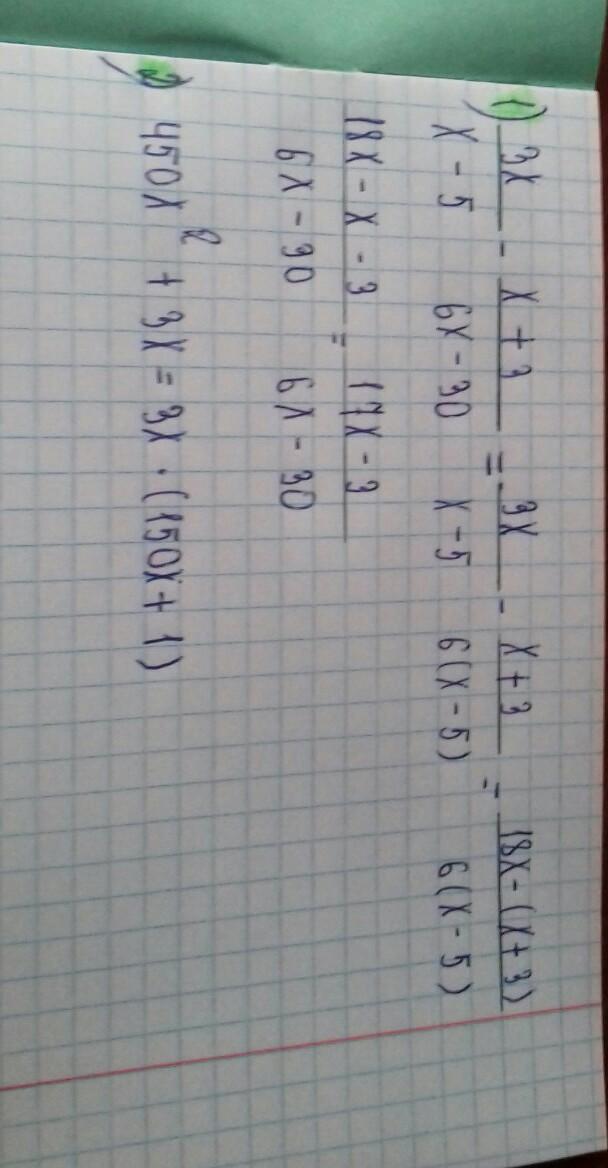 1) 3x/(x - 5) - (x + 3)/(6x - 30) = 3x/(x - 5) - (x + 3)/(6(x - 5)) = (18x - (x + 3))/(6(x - 5))
(18x - x - 3)/(6x - 30) = (17x - 3)/(6x - 30)
2) 450x² + 3x = 3x · (150x + 1)